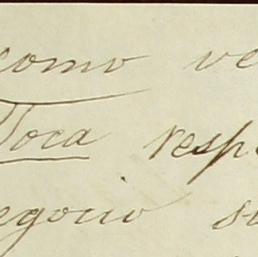 como ve
Toca resp
egocio su